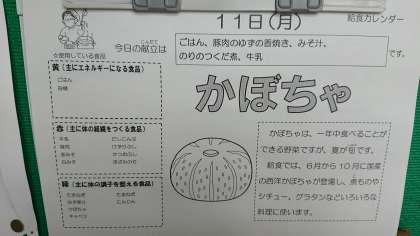 11日(月)
給食カレンダー
こんだて
今日の献立は
ごはん、豚肉のゆずの香焼き、みそ汁、
のりのつくだ煮、牛乳
です。
☆使用している食品
黄(主にエネルギーになる食品)
ごはん
砂糖
赤(主に体の組織をつくる食品)
牛乳
豚肉
だしこんぶ
けずりぶし
緑(主に体の調子を整える食品)
かぼちゃ
キャベツ
たまねぎ
にんじん
かぼちゃ
かぼちゃは、一年中食べることが
できる野菜ですが、夏が旬です。
給食では、6月から10月に国産
の西洋かぼちゃが登場し、煮ものや
シチュー、グラタンなどいろいろな
料理に使います。